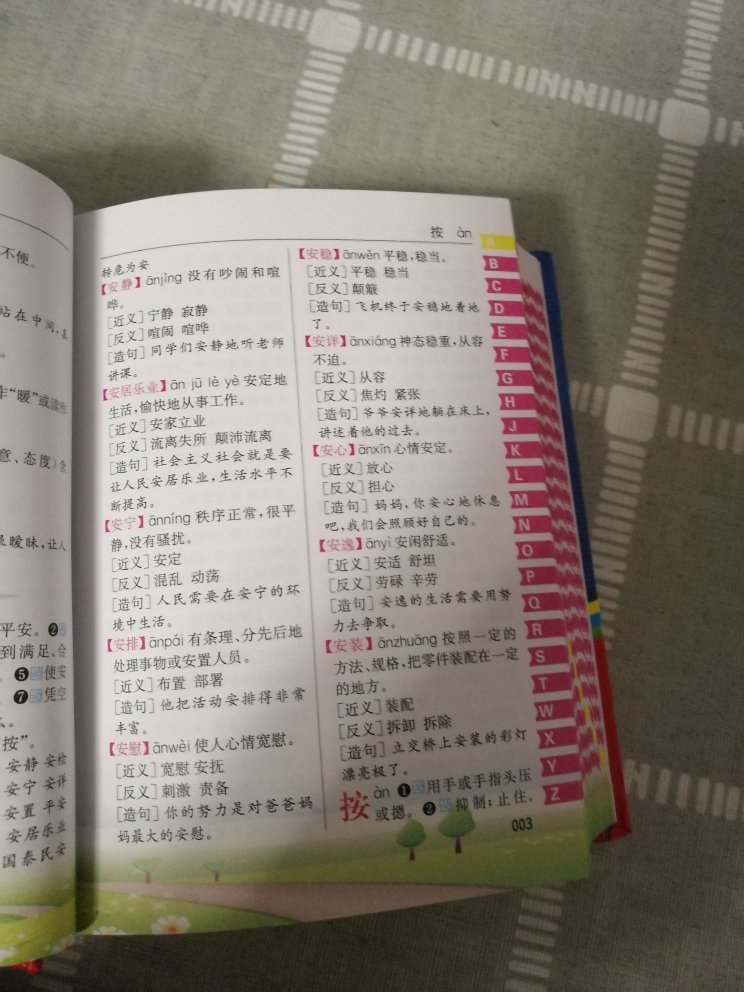 不便。
站在中间,
。
作“暖”或读作
意、态度)含
很暧昧,让人
平安。❷
到满足、合
。❺使安
❼凭空
么。
按”。
安静 安检
安宁 安详
安置 平安
安居乐业
国泰民安
按 àn
转危为安
【安静】ānjìng 没有吵闹和喧
哗。
[近义]宁静 寂静
[反义]喧闹 喧哗
[造句]同学们安静地听老师
讲课。
【安居乐业】ān jū lè yè 安定地
生活,愉快地从事工作。
[近义]安家立业
[反义]流离失所 颠沛流离
[造句]社会主义社会就是要
让人民安居乐业,生活水平不
断提高。
【安宁】ānníng 秩序正常,很平
静,没有骚扰。
[近义]安定
[反义]混乱 动荡
[造句]人民需要在安宁的环
境中生活。
【安排】ānpái 有条理、分先后地
处理事物或安置人员。
[近义]布置 部署
[造句]他把活动安排得非常
丰富。
【安慰】ānwèi 使人心情宽慰。
[近义]宽慰 安抚
[反义]刺激 责备
[造句]你的努力是对爸爸妈
妈最大的安慰。
【安稳】ānwěn 平稳,稳当。
[近义]平稳 稳当
[反义]颠簸
[造句]飞机终于安稳地着地
了。
【安详】ānxiáng 神态稳重,从容
不迫。
[近义]从容
[反义]焦灼 紧张
[造句]爷爷安详地躺在床上,
讲述着他的过去。
【安心】ānxīn 心情安定。
[近义]放心
[反义]担心
[造句]妈妈,你安心地休息
吧,我们会照顾好自己的。
【安逸】ānyì 安闲舒适。
[近义]安适 舒坦
[反义]劳碌 辛劳
[造句]安逸的生活需要用努
力去争取。
【安装】ānzhuāng 按照一定的
方法、规格,把零件装配在一定
的地方。
[近义]装配
[反义]拆卸 拆除
[造句]立交桥上安装的彩灯
漂亮极了。
按 àn ❶动用手或手指头压
或摁。❷动抑制;止住。
003
A
B
C
D
E
F
G
H
J
K
L
M
N
O
P
Q
R
S
T
W
X
Y
Z